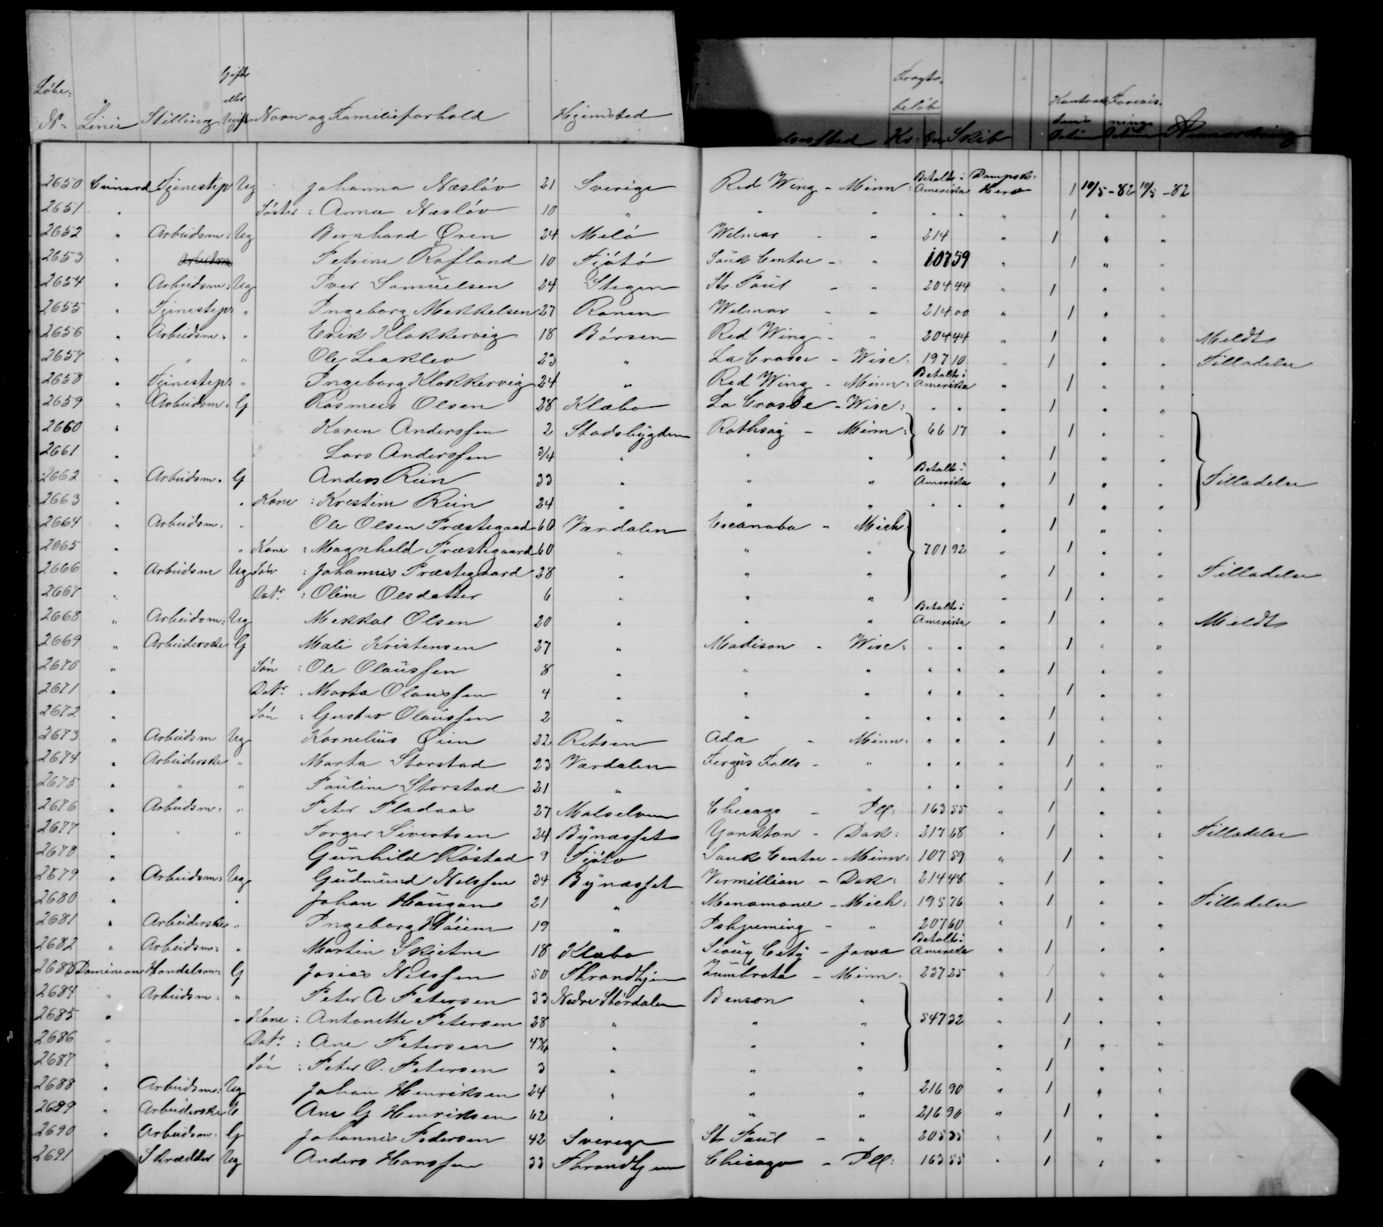 Løbe- Gift Fragt-
eller beløb Kontrac- Forevis-
№ Linie Stilling Ugift Navn og Familieforhold Hjemsted Kr: Øre Skib tens nings Anmærkning
Datum Datum
2650 Cunard Tjenestep: Ug Johanna Næsløv 21 Sverige Red Wing - Minn: Betalt i Amerika Dampsk: Hero 1 10/5-82 10/5-82
2651 " Søster: Anna Næsløv 10 " " " " " " 1 " "
2652 " Arbeidsm: Ug Bernhard Øren 24 Melö Wilmar - " 214 " 1 " "
2653 " Petrine Rofland 10 Tjötö Sauk Centre - " 107 59 " 1 " "
2654 " Arbeidsm: Ug Iver Samuelsen 24 Stegen St: Paul - " 204 44 " 1 " "
2655 " Tjenestep: " Ingeborg Mekkelsen 27 Ranen Wilmar - " 214 00 " 1 " "
2656 " Arbeidsm: " Erik Klokkervig 18 Börsen Red Wing - " 204 44 " 1 " " Meldt
2657 " " " Ole Leaklev 23 " La Crosse - Wisc: 197 10 " 1 " " Tilladelse
2658 " Tjenestep: " Ingeborg Klokkervig 24 " Red Wing - Minn: Betalt i Amerika " 1 " "
2659 " Arbeidsm: G Rasmus Olsen 28 Klæbo La Crosse - Wisc: " " " 1 " "
2660 " Karen Anderssen 2 Stadsbygden Rothsay - Minn: 66 17 " 1 " "
2661 " Lars Anderssen 3/4 " " " 1 " "
2662 " Arbeidsm: G Anders Rein 33 " " " Betalt i Amerika " 1 " " Tilladelse
2663 " Kone: Kristine Rein 24 " " " " " " 1 " "
2664 " Arbeidsm: " Ole Olsen Præstegaard 60 Værdalen Escanaba - Mich " 1 " "
2665 " " Kone: Magnhild Præstegaard 60 " " " 701 92 " 1 " "
2666 " Arbeidsm Ug Søn: Johannes Præstegaard 28 " " " " 1 " " Tilladelse
2667 " Datr: Oline Olsdatter 6 " " " 1 " "
2668 " Arbeidsm: Ug Mekkal Olsen 20 " " " Betalt i Amerika " 1 " " Meldt
2669 " Arbeiderske G Mali Kristensen 27 " Madison - Wisc: " " " 1 " "
2670 " Søn: Ole Olaussen 8 " " " " " " 1 " "
2671 " Datr: Marta Olaussen 4 " " " " " " 1 " "
2672 " Søn: Gustav Olaussen 2 " " " " " " 1 " "
2673 " Arbeidsm Ug Kornelius Øien 22 Ada - Minn: " " " 1 " "
2674 " Arbeiderske " Marta Storstad 23 Værdalen Fergus Falls - " " " " 1 " "
2675 " " " Pauline Storstad 21 " " " " " " 1 " "
2676 " Arbeidsm: " Peter Fladaas 27 Malselven Chicago - Ill: 163 55 " 1 " "
2677 " " " Torger Sivertsen 24 Bynæsset Yankton - Dak: 217 68 " 1 " " Tilladelse
2678 " Gunhild Röstad 9 Tjötö Sauk Centre - Minn: 107 59 " 1 " "
2679 " Arbeidsm: Ug Gudmund Nilssen 34 Bynæsset Vermillian - Dak: 214 48 " 1 " "
2680 " " " Johan Haugan 21 " Menomonee - Mich: 195 76 " 1 " " Tilladelse
2681 " Arbeiderske " Ingeborg Höiem 19 " Ishpeming - " 207 60 " 1 " "
2682 " Arbeidsm: " Martin Skjetne 18 Klæbo Siouy City - Jowa Betalt i Amerika " 1 " "
2683 Dominion Handelsm: G Josias Nilssen 50 Thrandhjem Zumbrota - Minn: 237 25 " 1 " "
2684 " Arbeidsm: " Peter A Petersen 33 Nedre Stördalen Benson " " 1 " "
2685 " " Kone: Antonette Petersen 28 " " " 547 32 " 1 " "
2686 " Datr: Ane Petersen 4 3/4 " " " 1 " "
2687 " Søn: Peter O. Petersen 3 " " " " 1 " "
2688 " Arbeidsm: Ug Johan Henriksen 24 " " " 216 90 " 1 " "
2689 " Arbeiderske E Ane G Henriksen 62 " " " 216 90 " 1 " "
2690 " Arbeidsm: G Johannes Pedersen 42 Sverige St: Paul - " 205 35 " 1 " "
2691 " Skrædder Ug Anders Hanssen 33 Thrandhjem Chicago - Ill: 163 55 " 1 " "